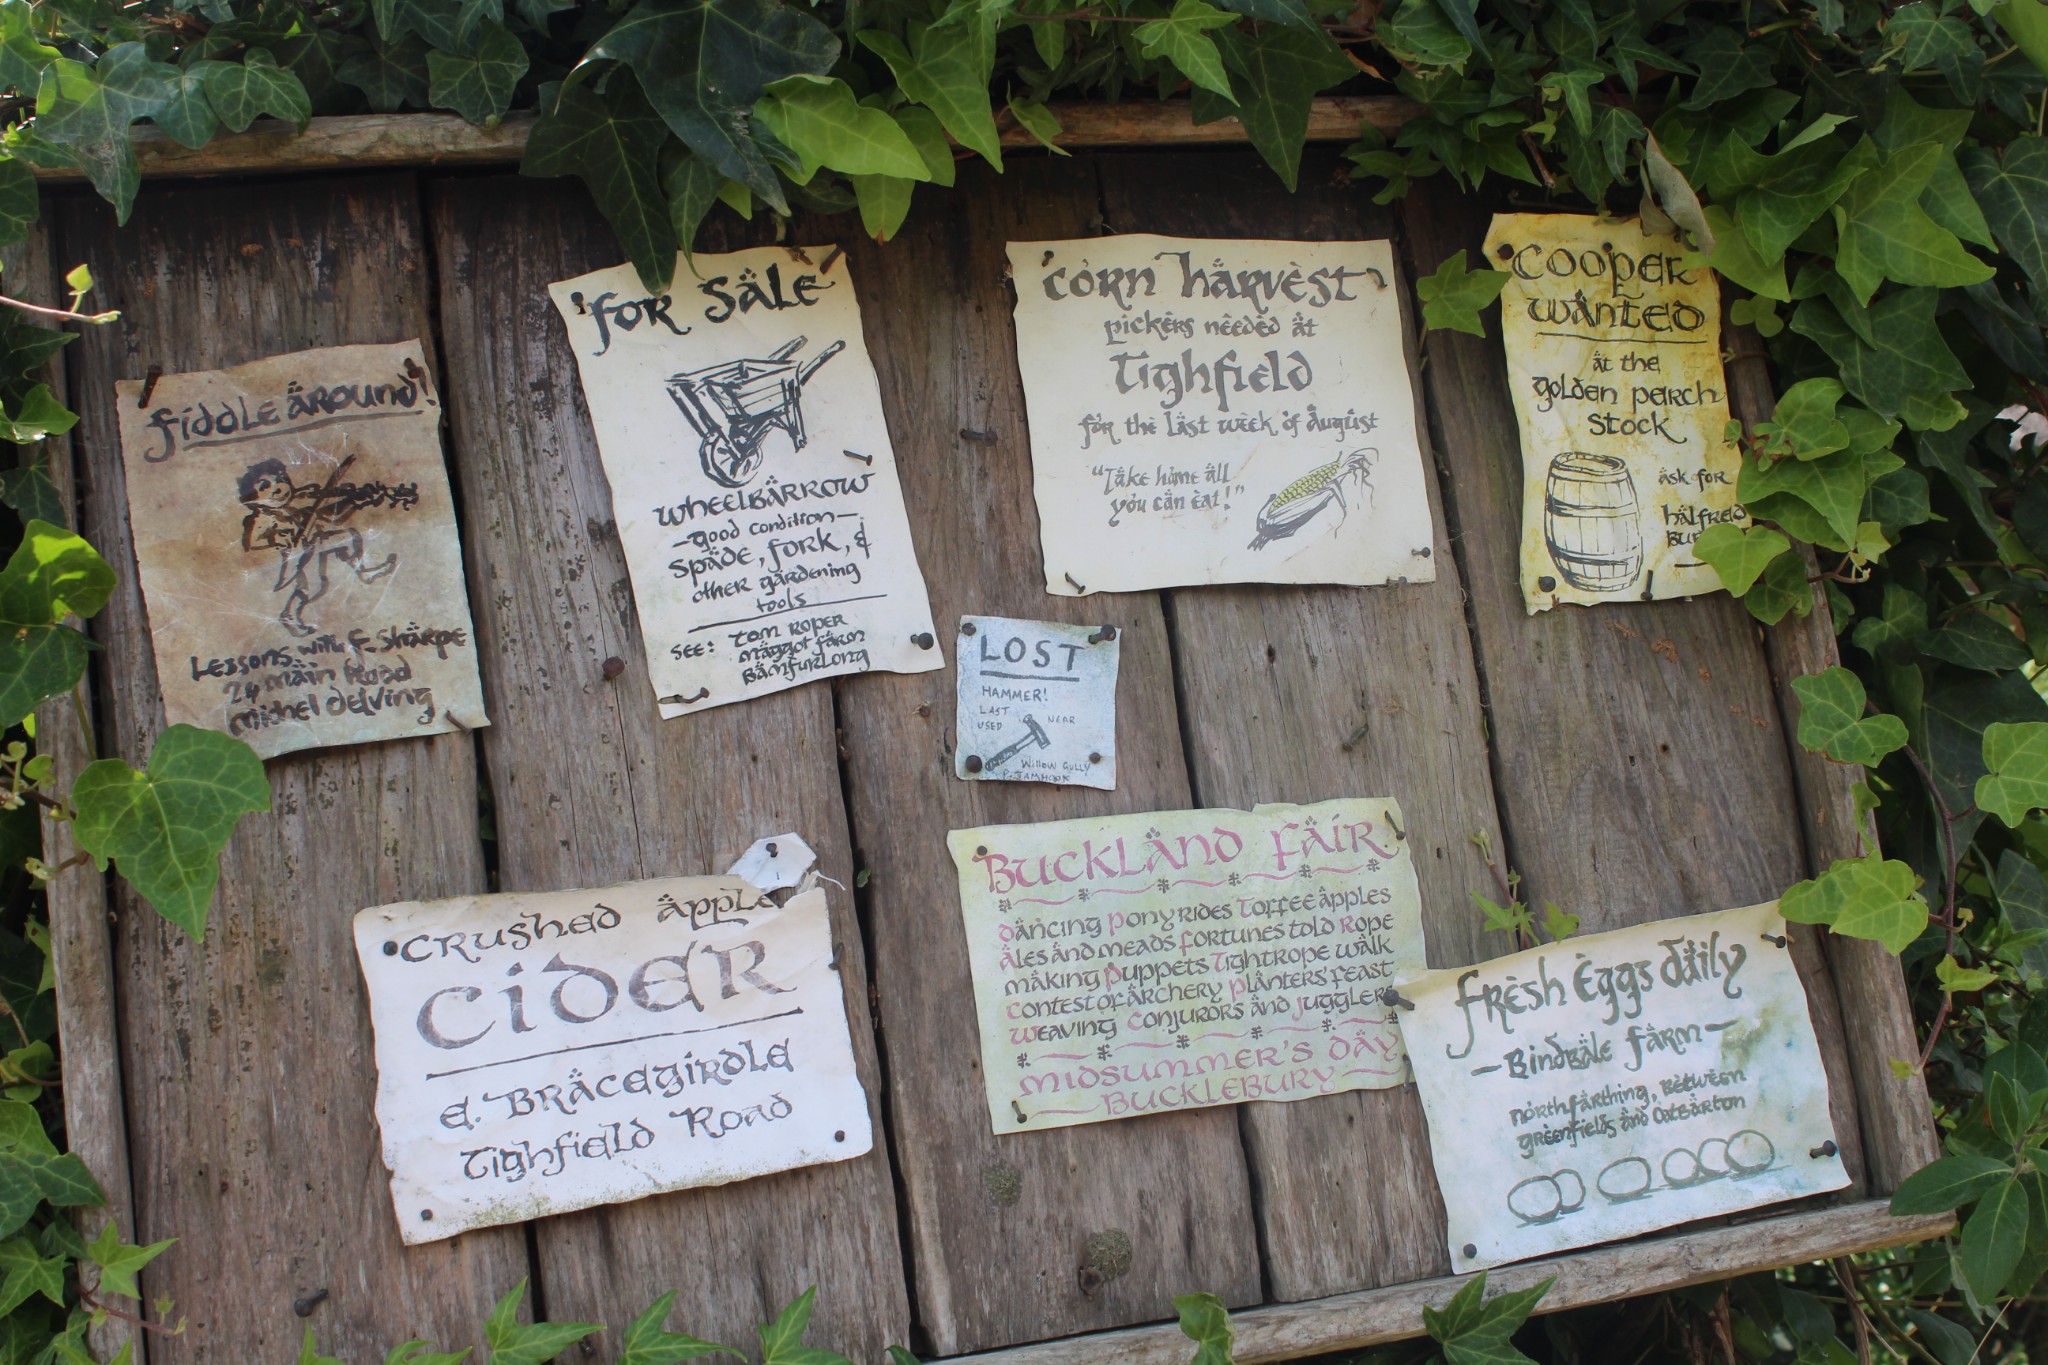 fiddle around!
Lessons with F. Sharpe
24 Main Road
Michel Delving
For Sale
Wheelbarrow
-Good condition-
Spade, Fork, &
other gardening
tools
See: Tom Roper
Maggot Farm
Bamfurlong
Corn Harvest
pickers needed at
Tighfield
for the last week of August
"Take home all
you can eat!"
Cooper
Wanted
at the
Golden Perch
Stock
ask for
Halfred
LOST
HAMMER!
LAST
USED NEAR
Willow Gully
P. JAMHOOK
Crushed Apple
Cider
E. Bracegirdle
Tighfield Road
Buckland Fair
Dancing Pony rides Toffee apples
Ales and meads Fortunes told Rope
making Puppets Tightrope walk
Contest of Archery Planters' feast
Weaving Conjurors and Jugglers
Midsummer's Day
Bucklebury
Fresh Eggs daily
-Bindbale Farm-
Northfarthing, between
Greenfields and Oatbarton